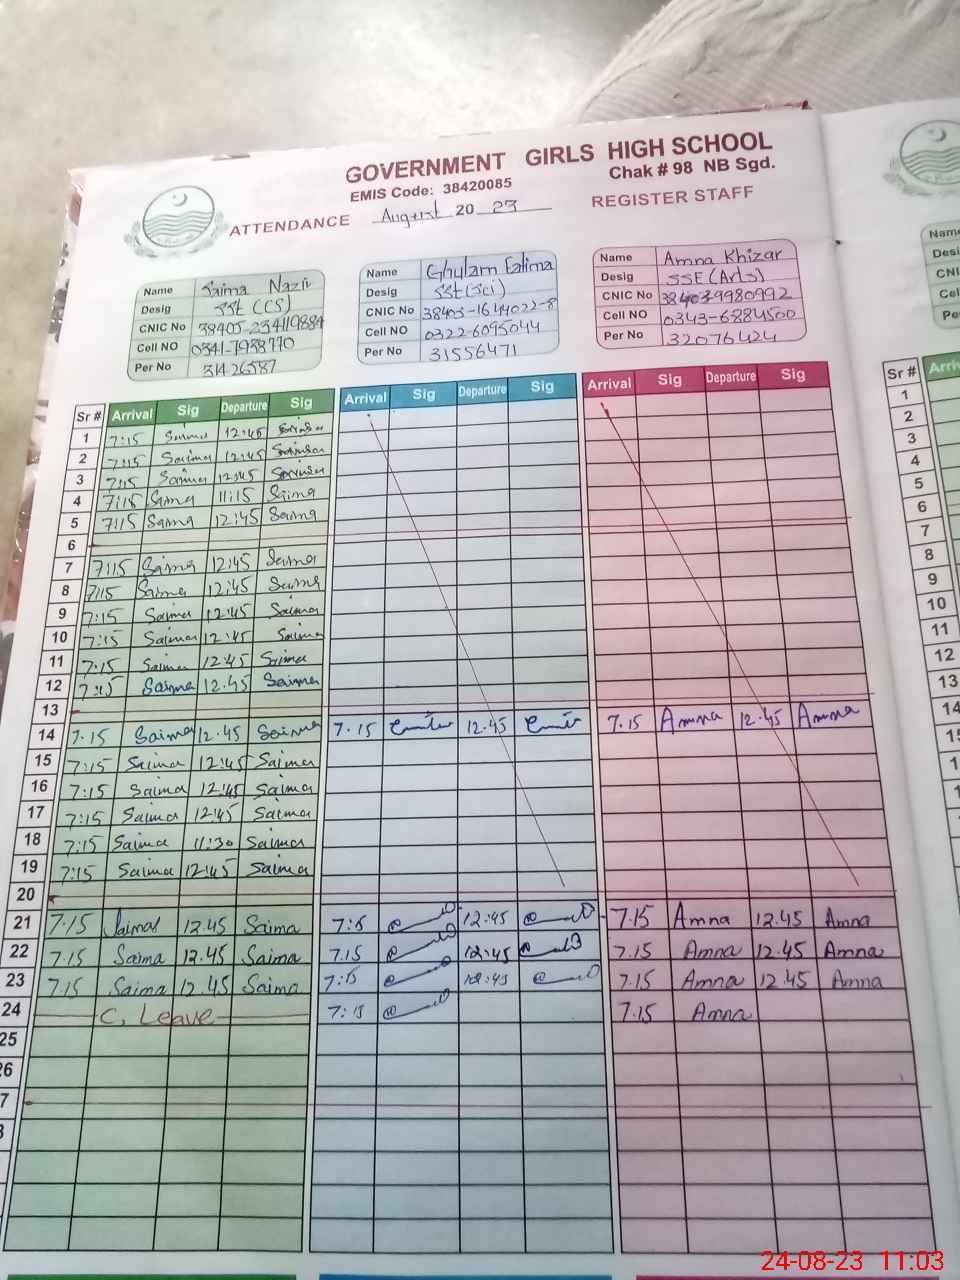 GOVERNMENT GIRLS HIGH SCHOOL
EMIS Code: 38420085 Chak # 98 NB Sgd.
ATTENDANCE August 20 23 REGISTER STAFF
Name Saima Nazir
Desig SST (CS)
CNIC No
Cell NO
Per No
Name Ghulam Fatima
Desig SSt (Sci)
CNIC No 38403-1644022-8
Cell NO 0322-6095044
Per No 31556471
Name Amna Khizar
Desig SSE (Arts)
CNIC No
Cell NO 0343-6884500
Per No 32076424
Sr # Arrival Sig Departure Sig Arrival Sig Departure Sig Arrival Sig Departure Sig
1 7:15 Saima 12:45 Saima
2 7:15 Saima 12:45 Saima
3 7:15 Saima 12:45 Saima
4 7:15 Saima 11:15 Saima
5 7:15 Saima 12:45 Saima
6
7 7:15 Saima 12:45 Saima
8 7:15 Saima 12:45 Saima
9 7:15 Saima 12:45 Saima
10 7:15 Saima 12:45 Saima
11 7:15 Saima 12:45 Saima
12 7:15 Saima 12:45 Saima
13
14 7.15 Saima 12.45 Saima 7.15 12.45 7.15 Amna 12.45 Amna
15 7:15 Saima 12:45 Saima
16 7:15 Saima 12:45 Saima
17 7:15 Saima 12:45 Saima
18 7:15 Saima 11:30 Saima
19 7:15 Saima 12:45 Saima
20
21 7.15 Saima 12.45 Saima 12:45 7.15 Amna 12.45 Amna
22 7.15 Saima 12.45 Saima 7.15 12:45 7.15 Amna 12.45 Amna
23 7.15 Saima 12.45 Saima 7:15 12:45 7.15 Amna 12.45 Amna
24 C. Leave 7:15 7.15 Amna
25
26
7
Name
Desi
CNI
Cel
Pe
Sr # Arriv
1
2
3
4
5
6
7
8
9
10
11
12
13
14
15
24-08-23 11:03